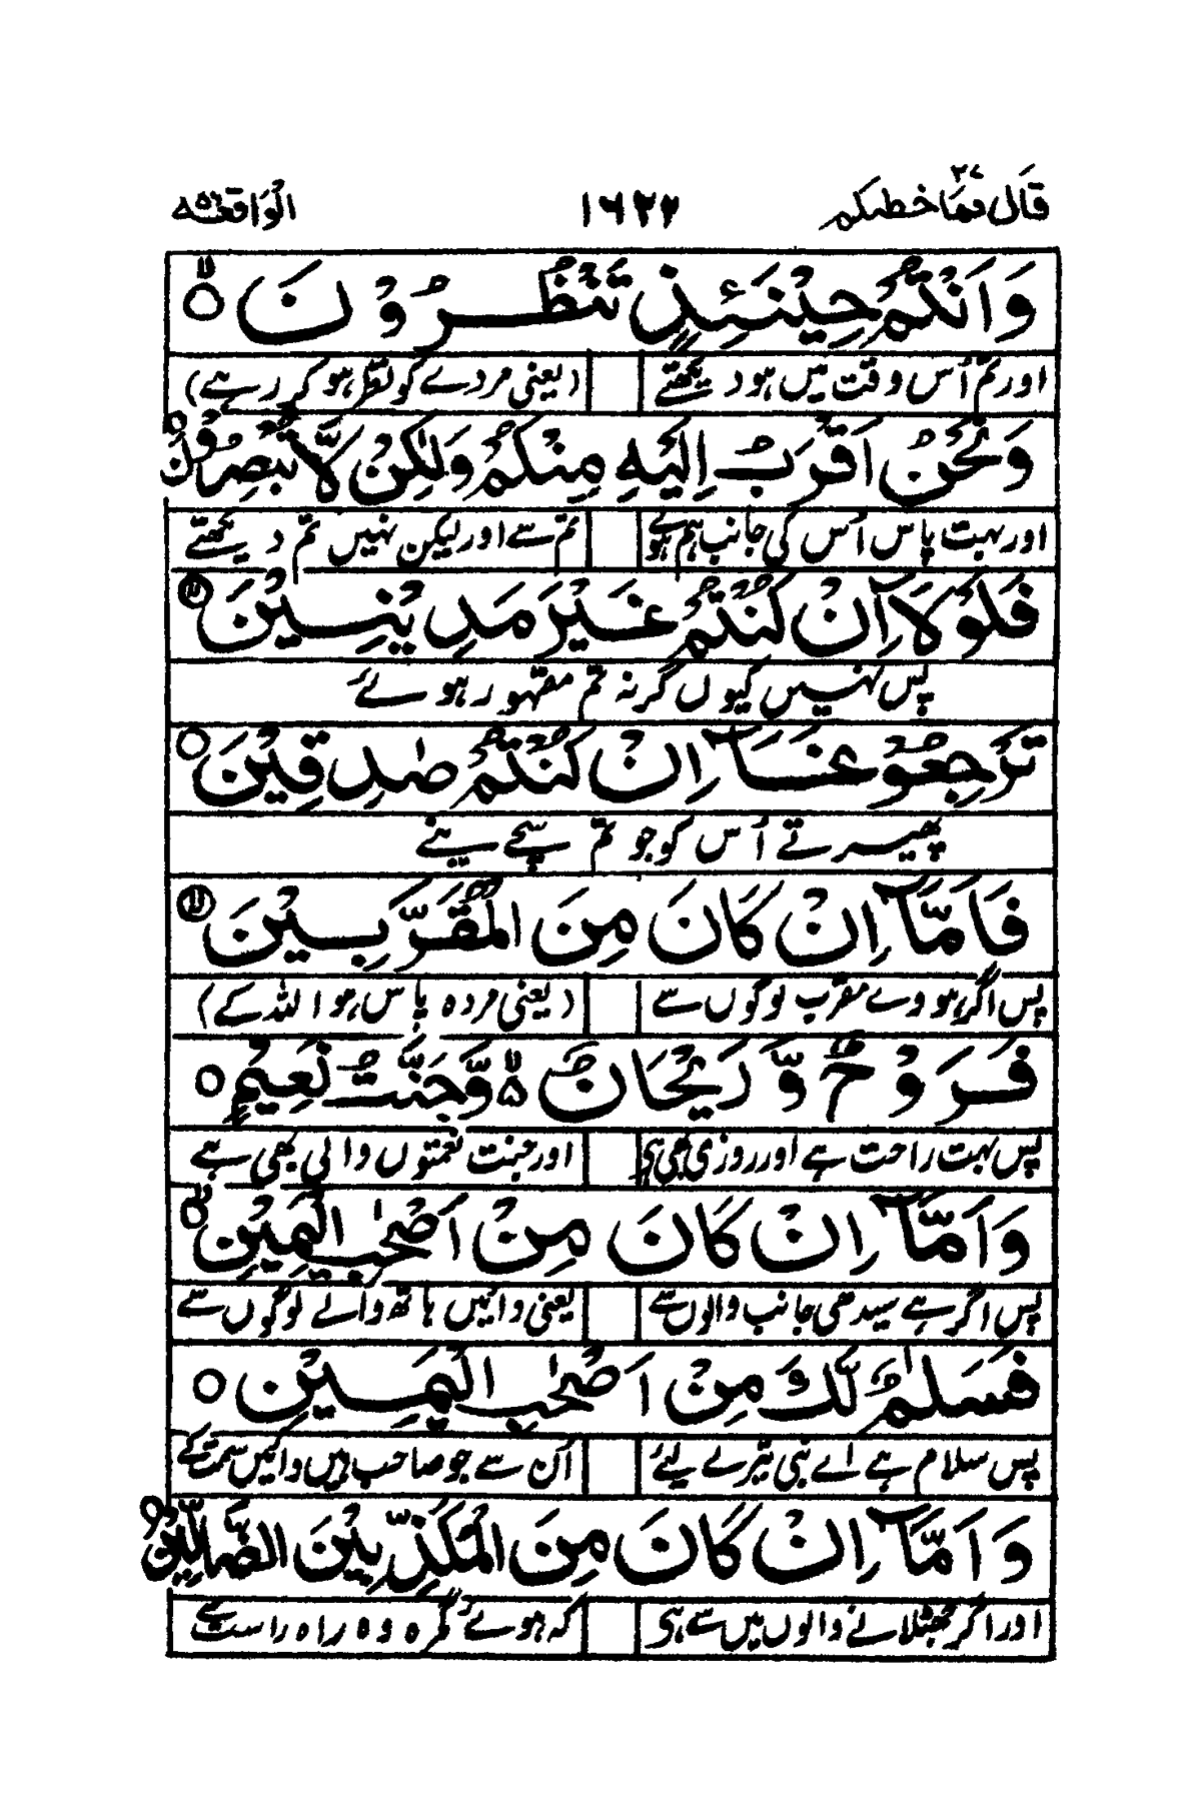 قال فما خطبكم ۲۷ ۱۶۲۲ الواقعة ۵۶
وَاَنْتُمْ حِيْنَئِذٍ تَنْظُرُوْنَ
اور تم اُس وقت میں ہو دیکھتے (یعنی مردے کو نظر ہو کر رہے)
وَنَحْنُ اَقْرَبُ اِلَيْهِ مِنْكُمْ وَلٰكِنْ لَّا تُبْصِرُوْنَ
اور بہت پاس اُس کی جانب ہم ہوئے تم سے اور لیکن نہیں تم دیکھتے
فَلَوْلَآ اِنْ كُنْتُمْ غَيْرَ مَدِيْنِيْنَ
پس نہیں کیوں گر نہ تم مقہور ہوئے
تَرْجِعُوْنَهَآ اِنْ كُنْتُمْ صٰدِقِيْنَ
پھیرتے اُس کو جو تم سچے بنے
فَاَمَّآ اِنْ كَانَ مِنَ الْمُقَرَّبِيْنَ
پس اگر ہووے مقرب لوگوں سے (یعنی مردہ پاس ہو اللہ کے)
فَرَوْحٌ وَّرَيْحَانٌ وَّجَنَّتُ نَعِيْمٍ
پس بہت راحت ہے اور روزی بھی ہی اور جنت نعمتوں والی بھی ہے
وَاَمَّآ اِنْ كَانَ مِنْ اَصْحٰبِ الْيَمِيْنِ
پس اگر ہے سیدھی جانب والوں سے یعنی دائیں ہاتھ والے لوگوں سے
فَسَلٰمٌ لَّكَ مِنْ اَصْحٰبِ الْيَمِيْنِ
پس سلام ہے اے نبی تیرے لئے اُن سے جو صاحب ہیں دائیں سمت کے
وَاَمَّآ اِنْ كَانَ مِنَ الْمُكَذِّبِيْنَ الضَّآلِّيْنَ
اور اگر جھٹلانے والوں میں سے ہی کہ ہوئے گمرہ وہ راہ راست سے